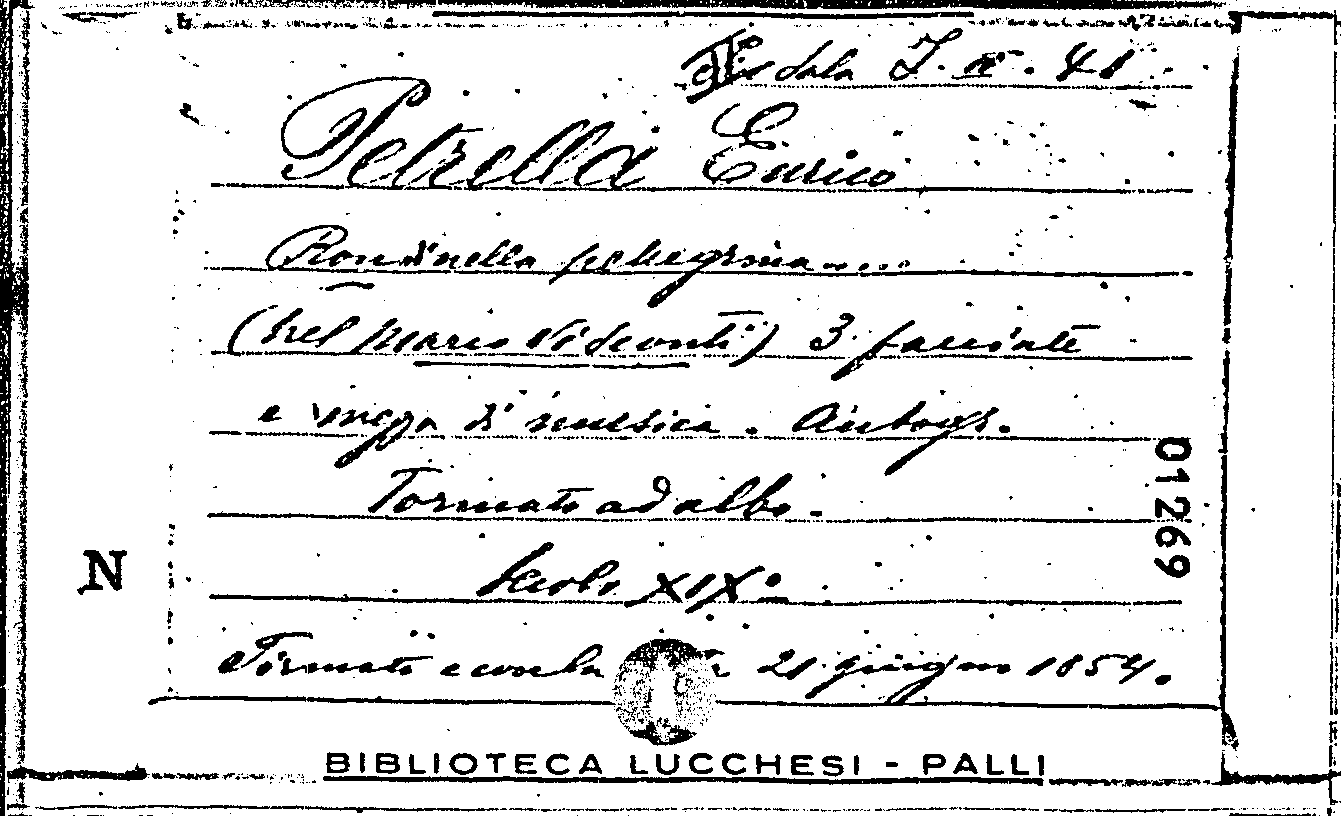 Sala I. IV. 41
Petrella Enrico
Rondinella pellegrina....
(nel Marco Visconti) 3 facciate
e mezza di musica. Autogr.
Formato ad albo.
01269
Secolo XIXº
N
Firmato e con la 21 giugno 1854.
BIBLIOTECA LUCCHESI - PALLI